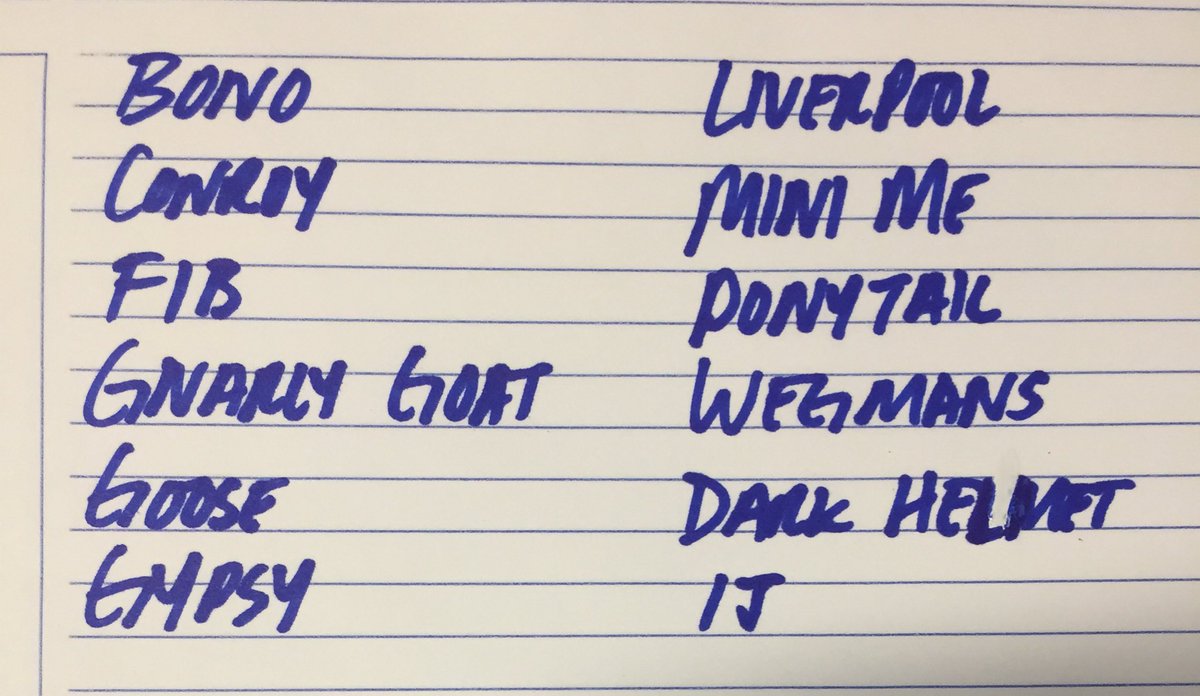 BONO
CONROY
FIB
GNARLY GOAT
GOOSE
GYPSY
LIVERPOOL
MINI ME
PONYTAIL
WEGMANS
DARK HELMET
IJ